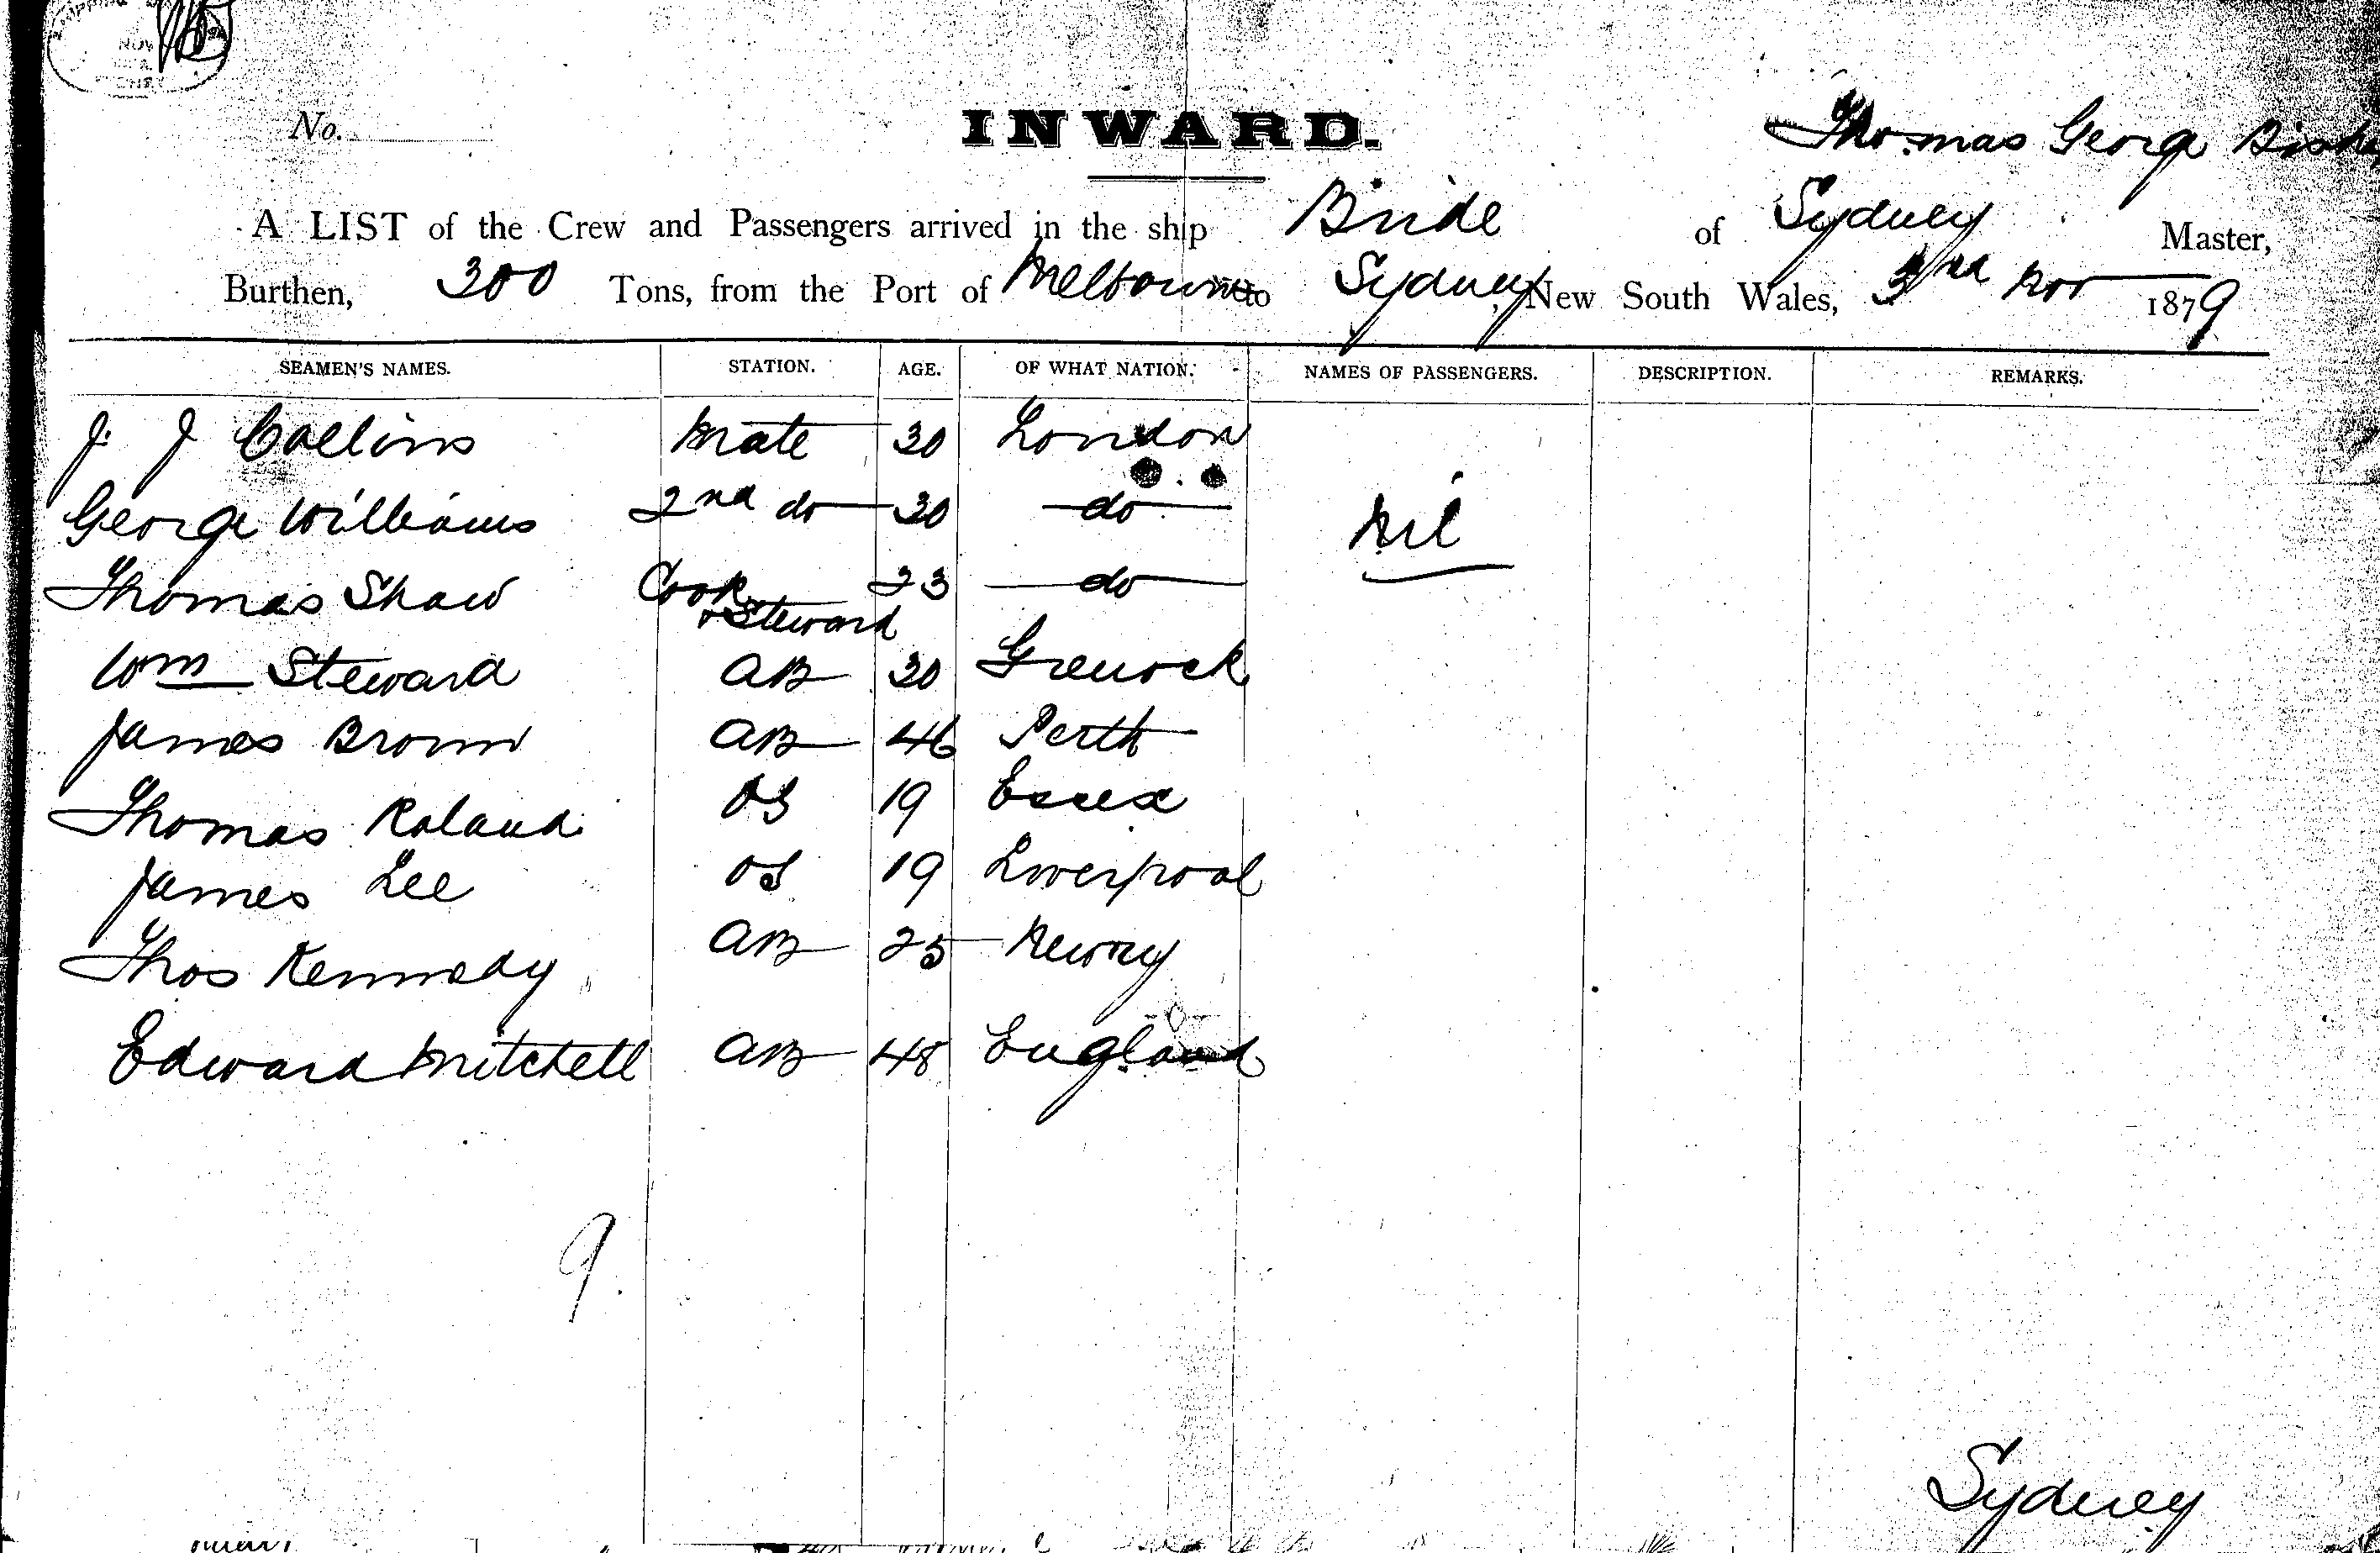 No.
INWARD.
Thomas George
A LIST of the Crew and Passengers arrived in the ship Bride of Sydney Master,
Burthen, 300 Tons, from the Port of Melbourne to Sydney, New South Wales, 3rd Nov 1879
SEAMEN'S NAMES. STATION. AGE. OF WHAT NATION. NAMES OF PASSENGERS. DESCRIPTION. REMARKS.
J. J Collins Mate 30 London
George Williams 2nd do 30 do Nil
Thomas Shaw Cook & Steward 23 do
Wm Steward AB 30 Greenock
James Brown AB 46 Perth
Thomas Roland OS 19 Essex
James Lee OS 19 Liverpool
Thos Kennedy AB 25 Newry
Edward Mitchell AB 48 England
9.
Sydney